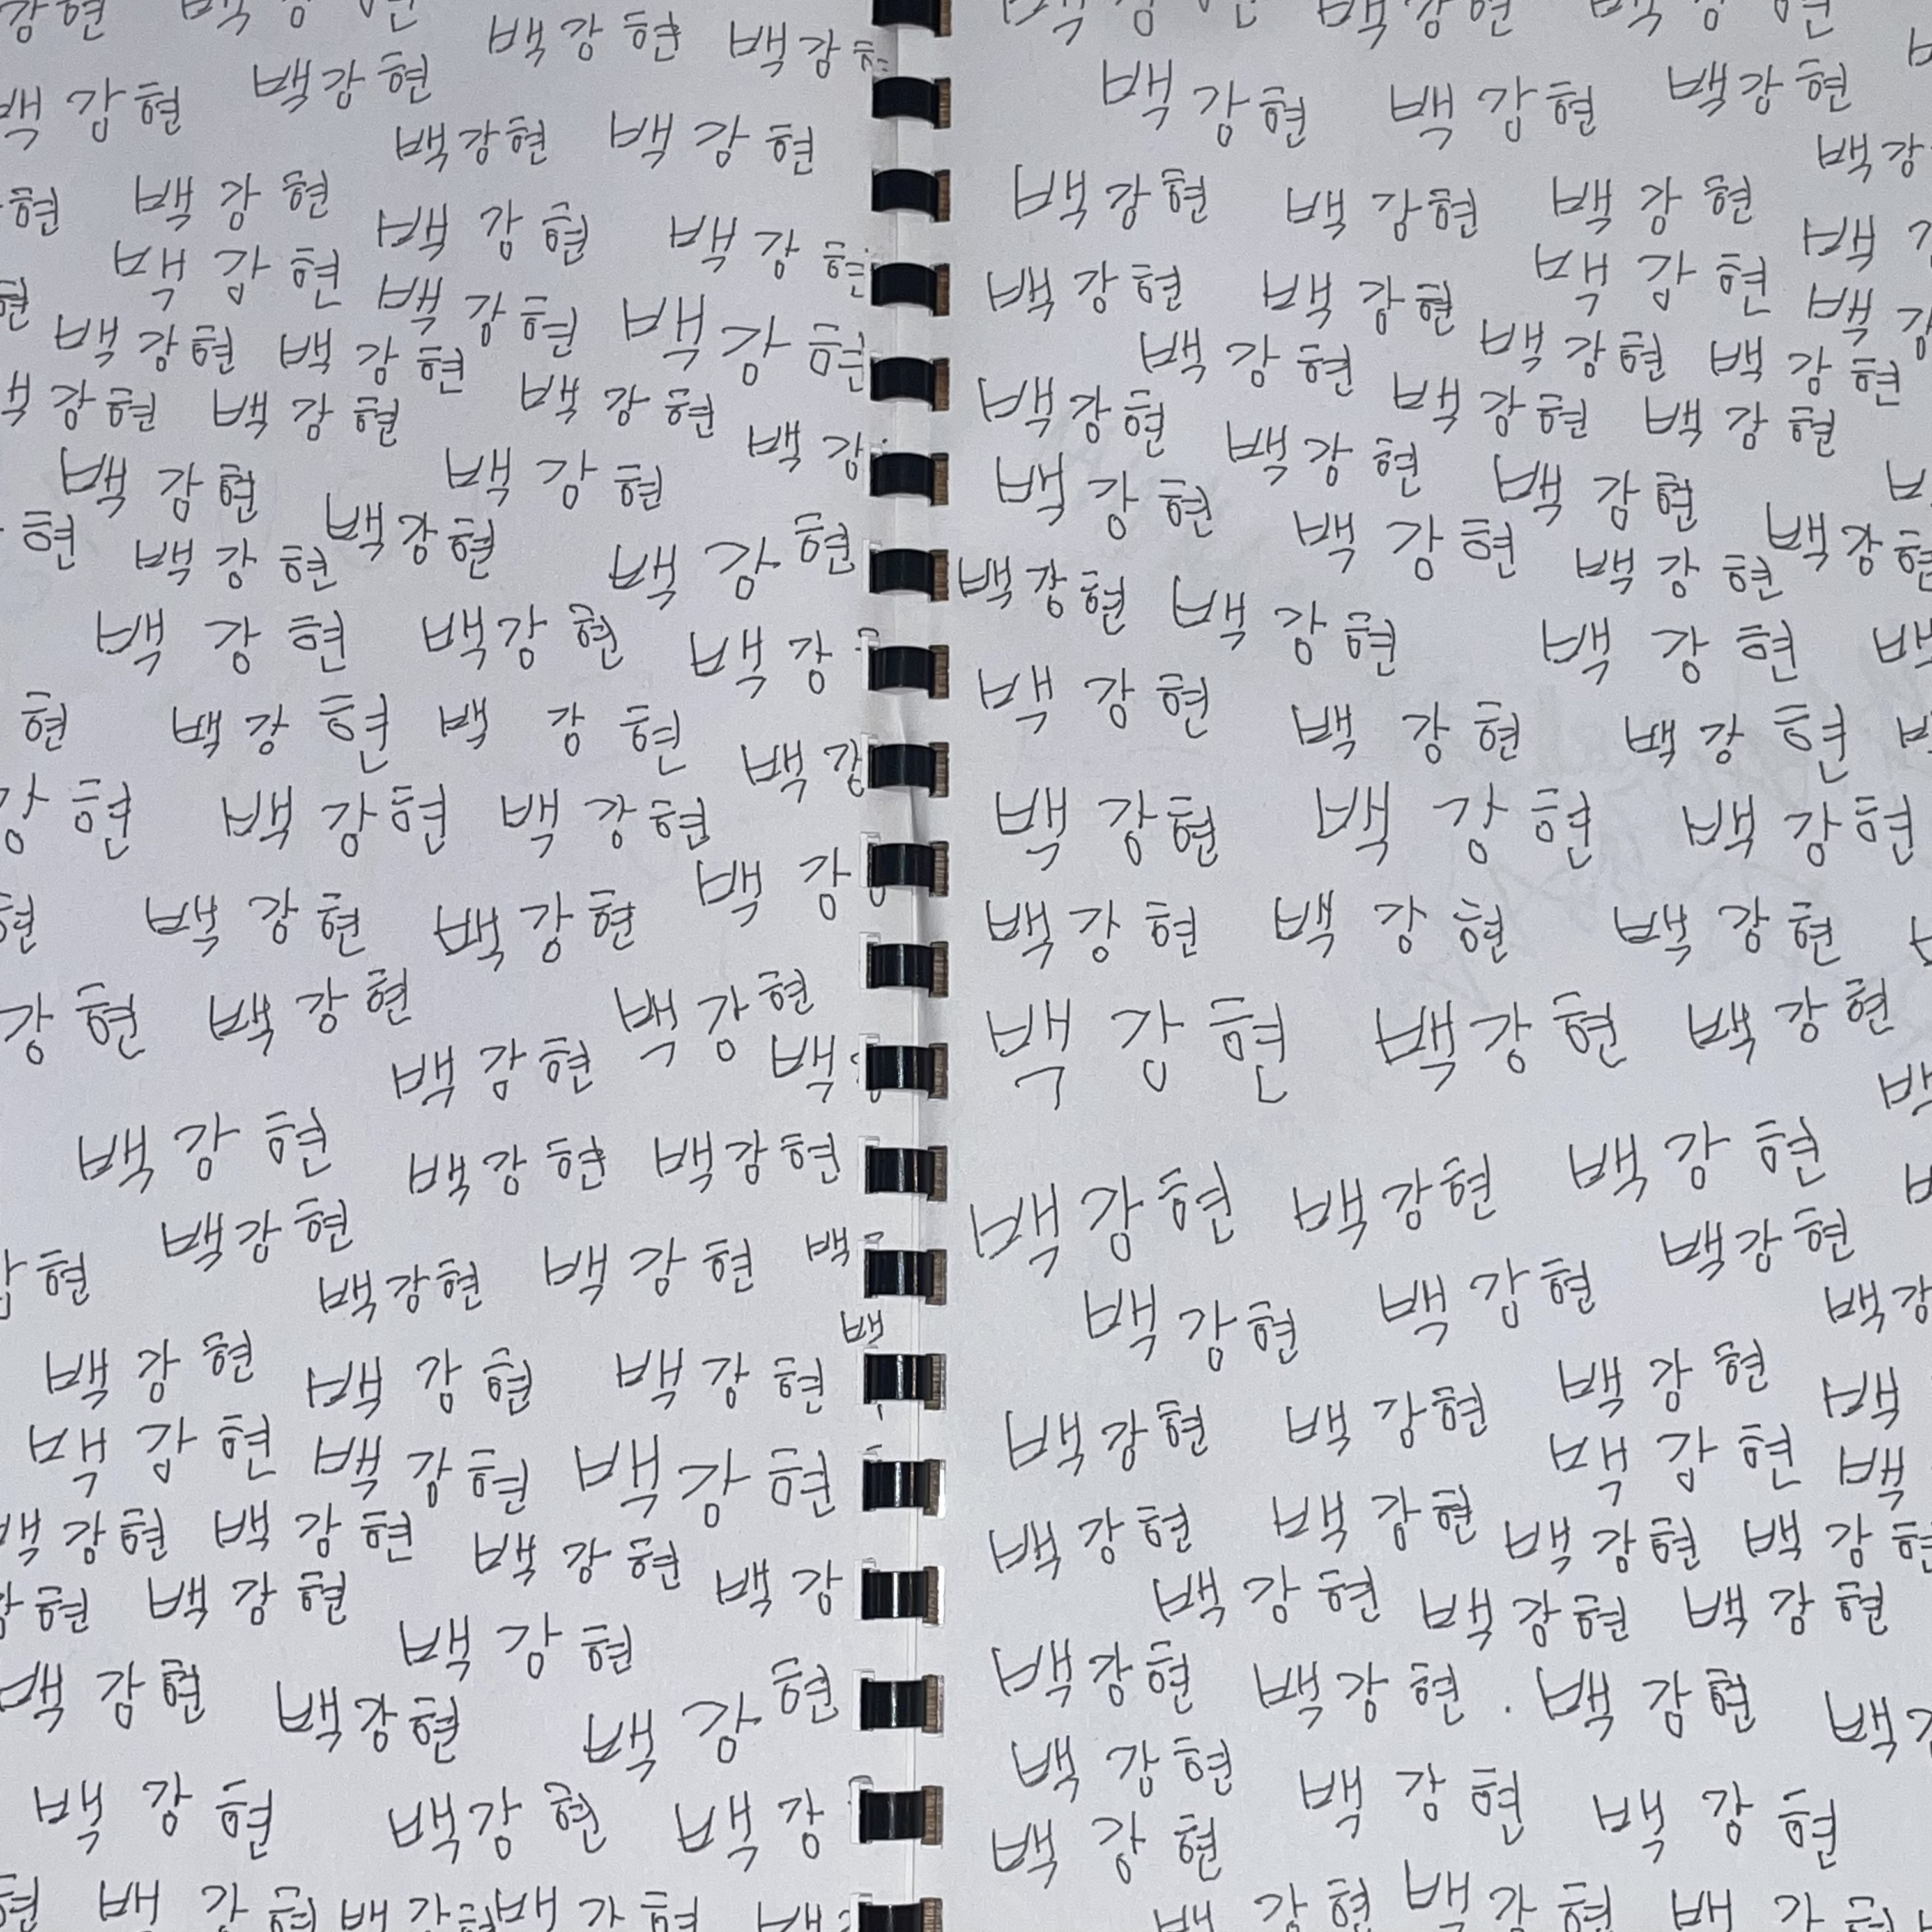 강현 백강현 백강현 백강현
백강현 백강현
백강현 백강현
현 백강현 백강현 백강현
백강현 백강현
현 백강현 백강현 백강현
강현 백강현 백강현 백강
백강현 백강현
현 백강현 백강현 백강현
백강현 백강현 백강
현 백강현 백강현 백강
강현 백강현 백강현
현 백강현 백강현 백강
강현 백강현 백강현
백강현 백
백강현 백강현 백강현
백강현
현 백강현 백강현 백
백
백강현 백강현 백강현
백강현 백강현 백강현
백강현 백강현 백강현 백강
강현 백강현
백강현
백강현 백강현 백강현
백강현 백강현 백강
현 백강현 백강현 백강현
백강현 백강현 백강현
백강현 백강현 백강현
백강
백강현 백강현 백강현
백강현 백강현 백강현 백
백강현 백강현 백강현 백강
백강현 백강현 백강현
백강현 백강현
백강현 백강현 백강현
백강현 백강현 백강현
백강현 백강현 백강현 백
백강현 백강현 백강현
백강현 백강현 백강현
백강현 백강현 백강현
백강현 백강현 백강현
백
백강현 백강현 백강현
백강현 백강현 백강현
백강
백강현 백강현 백강현 백
백강현 백
백강현 백강현 백강현 백강현
백강현 백강현 백강현
백강현 백강현 백강현 백
백강현 백강현 백강현
백강현
백강현 백강현 백강현